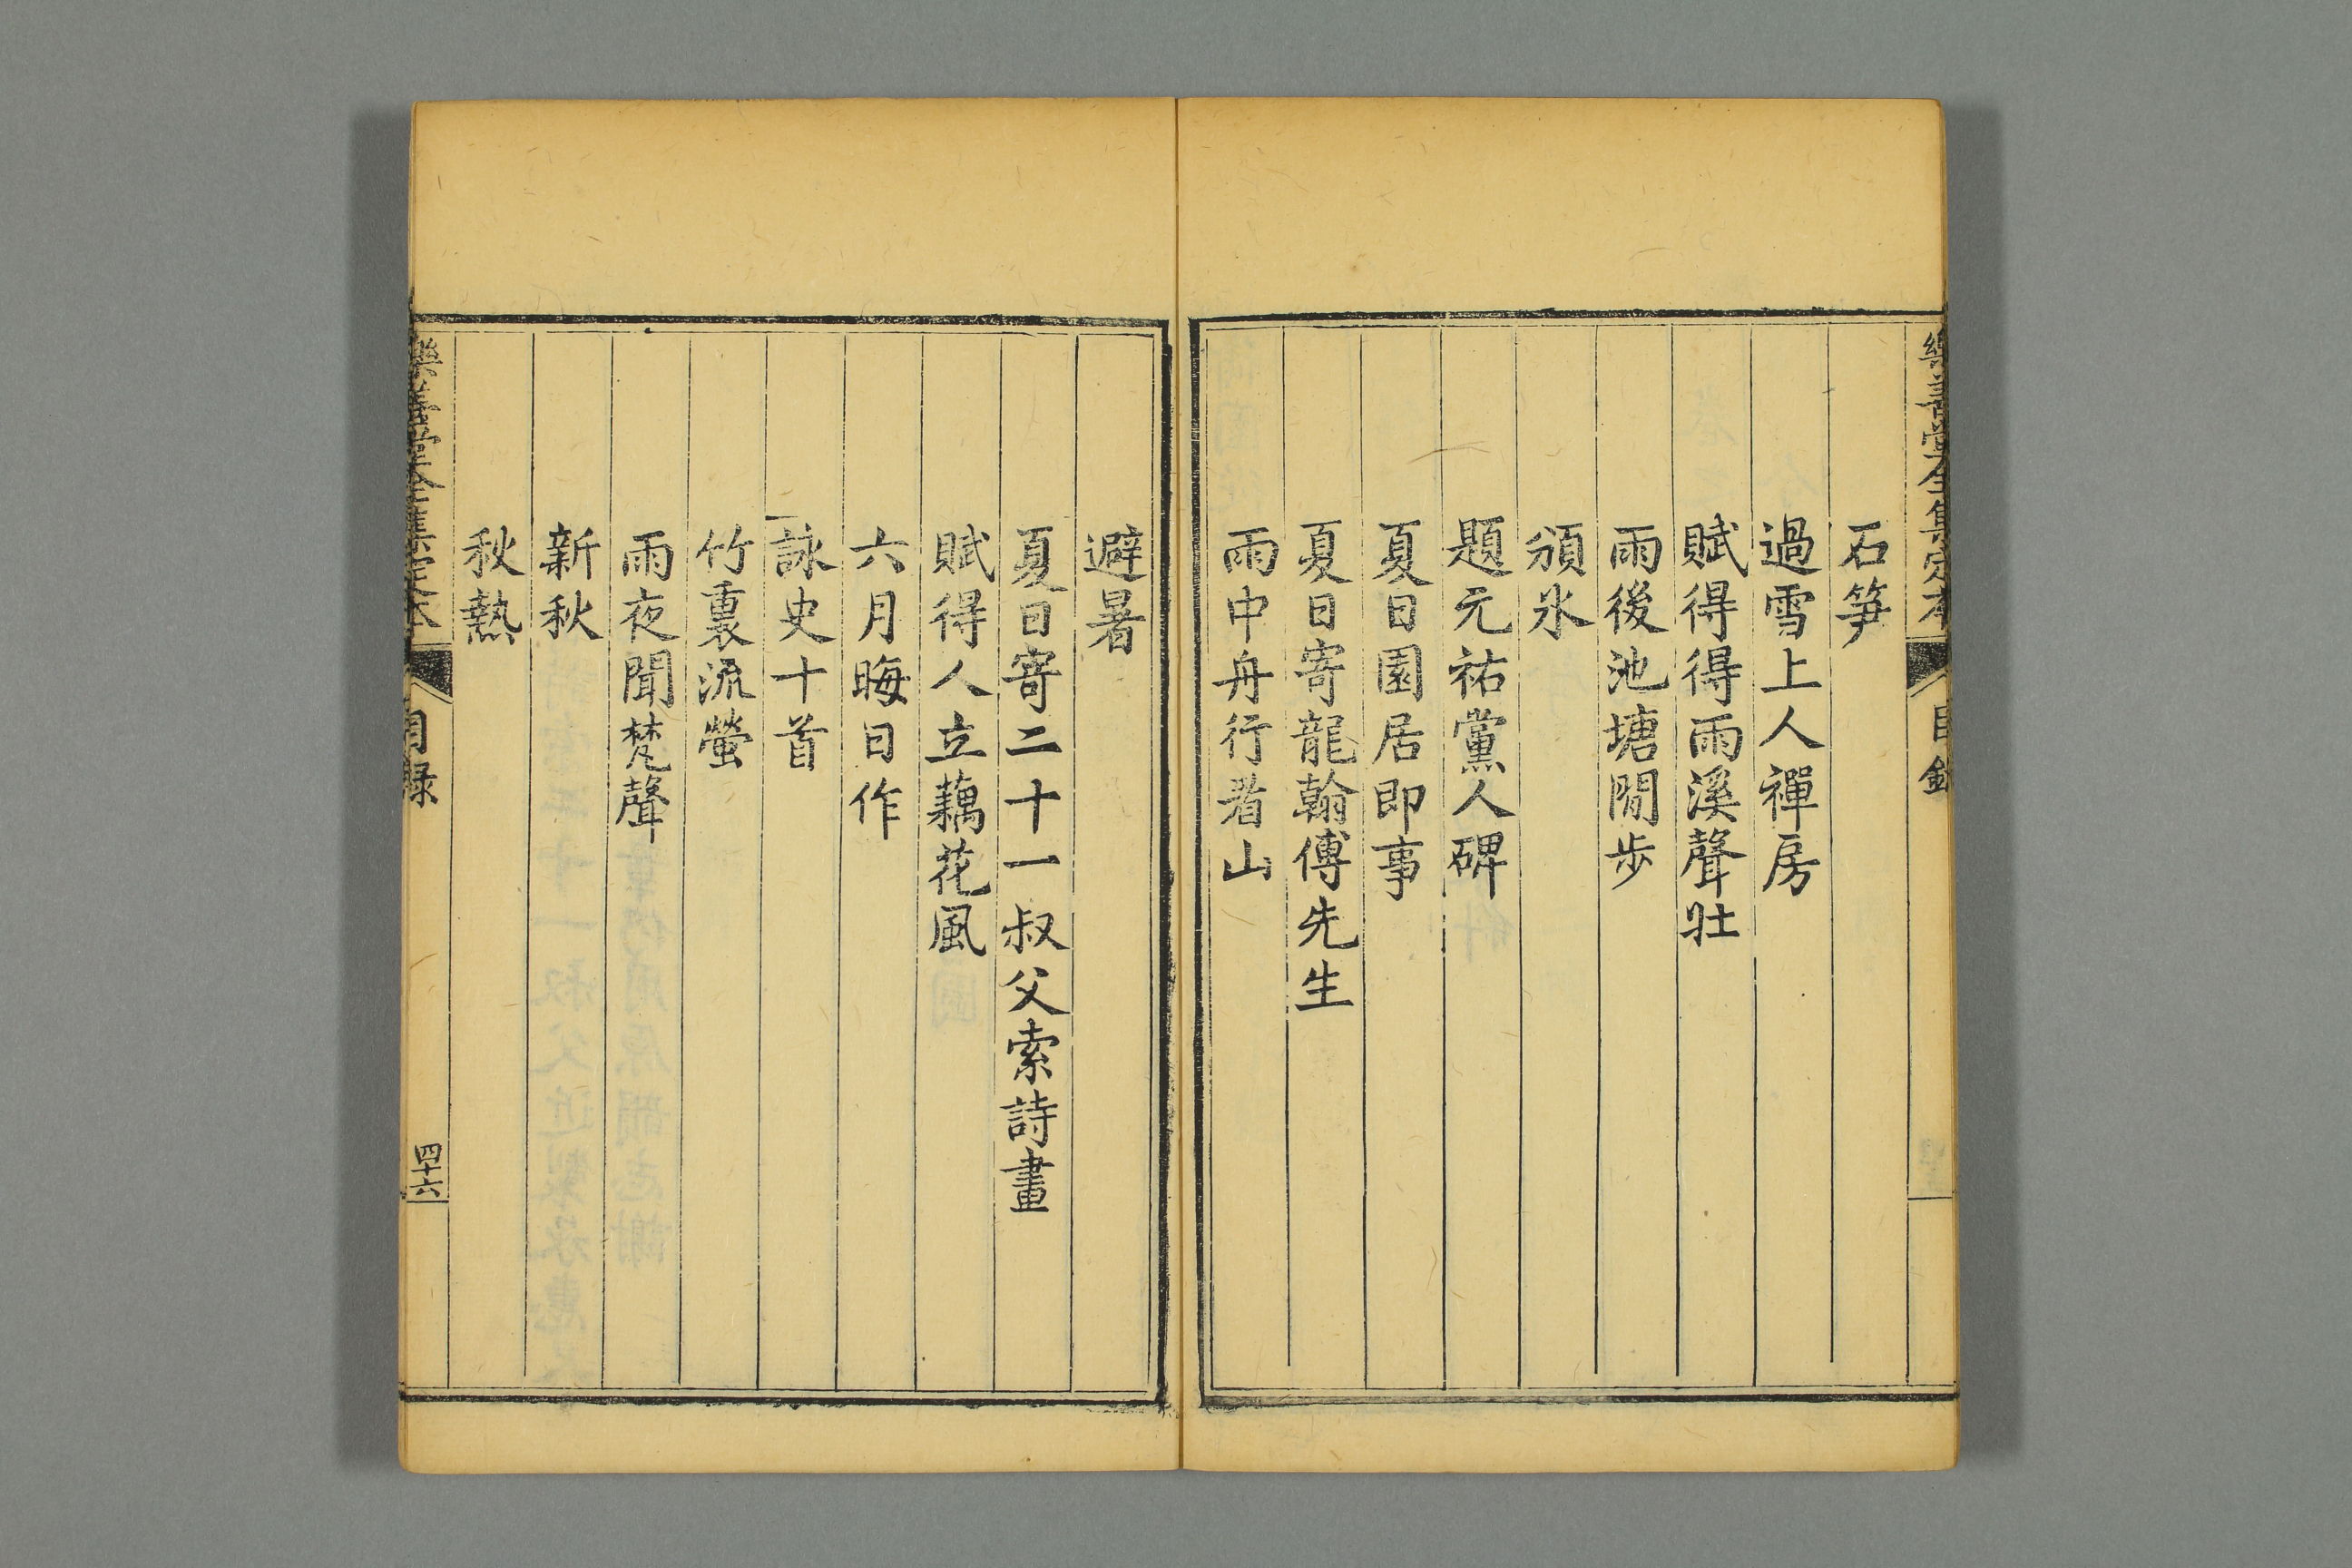 樂善堂全集定本
目錄
石笋
過雪上人禪房
賦得得雨溪聲壯
雨後池塘閒步
頒氷
題元祐黨人碑
夏日園居即事
夏日寄龍翰傅先生
雨中舟行看山
避暑
夏日寄二十一叔父索詩畫
賦得人立藕花風
六月晦日作
詠史十首
竹裏流螢
雨夜聞梵聲
新秋
秋熱
樂善堂全集定本
目錄
四十六